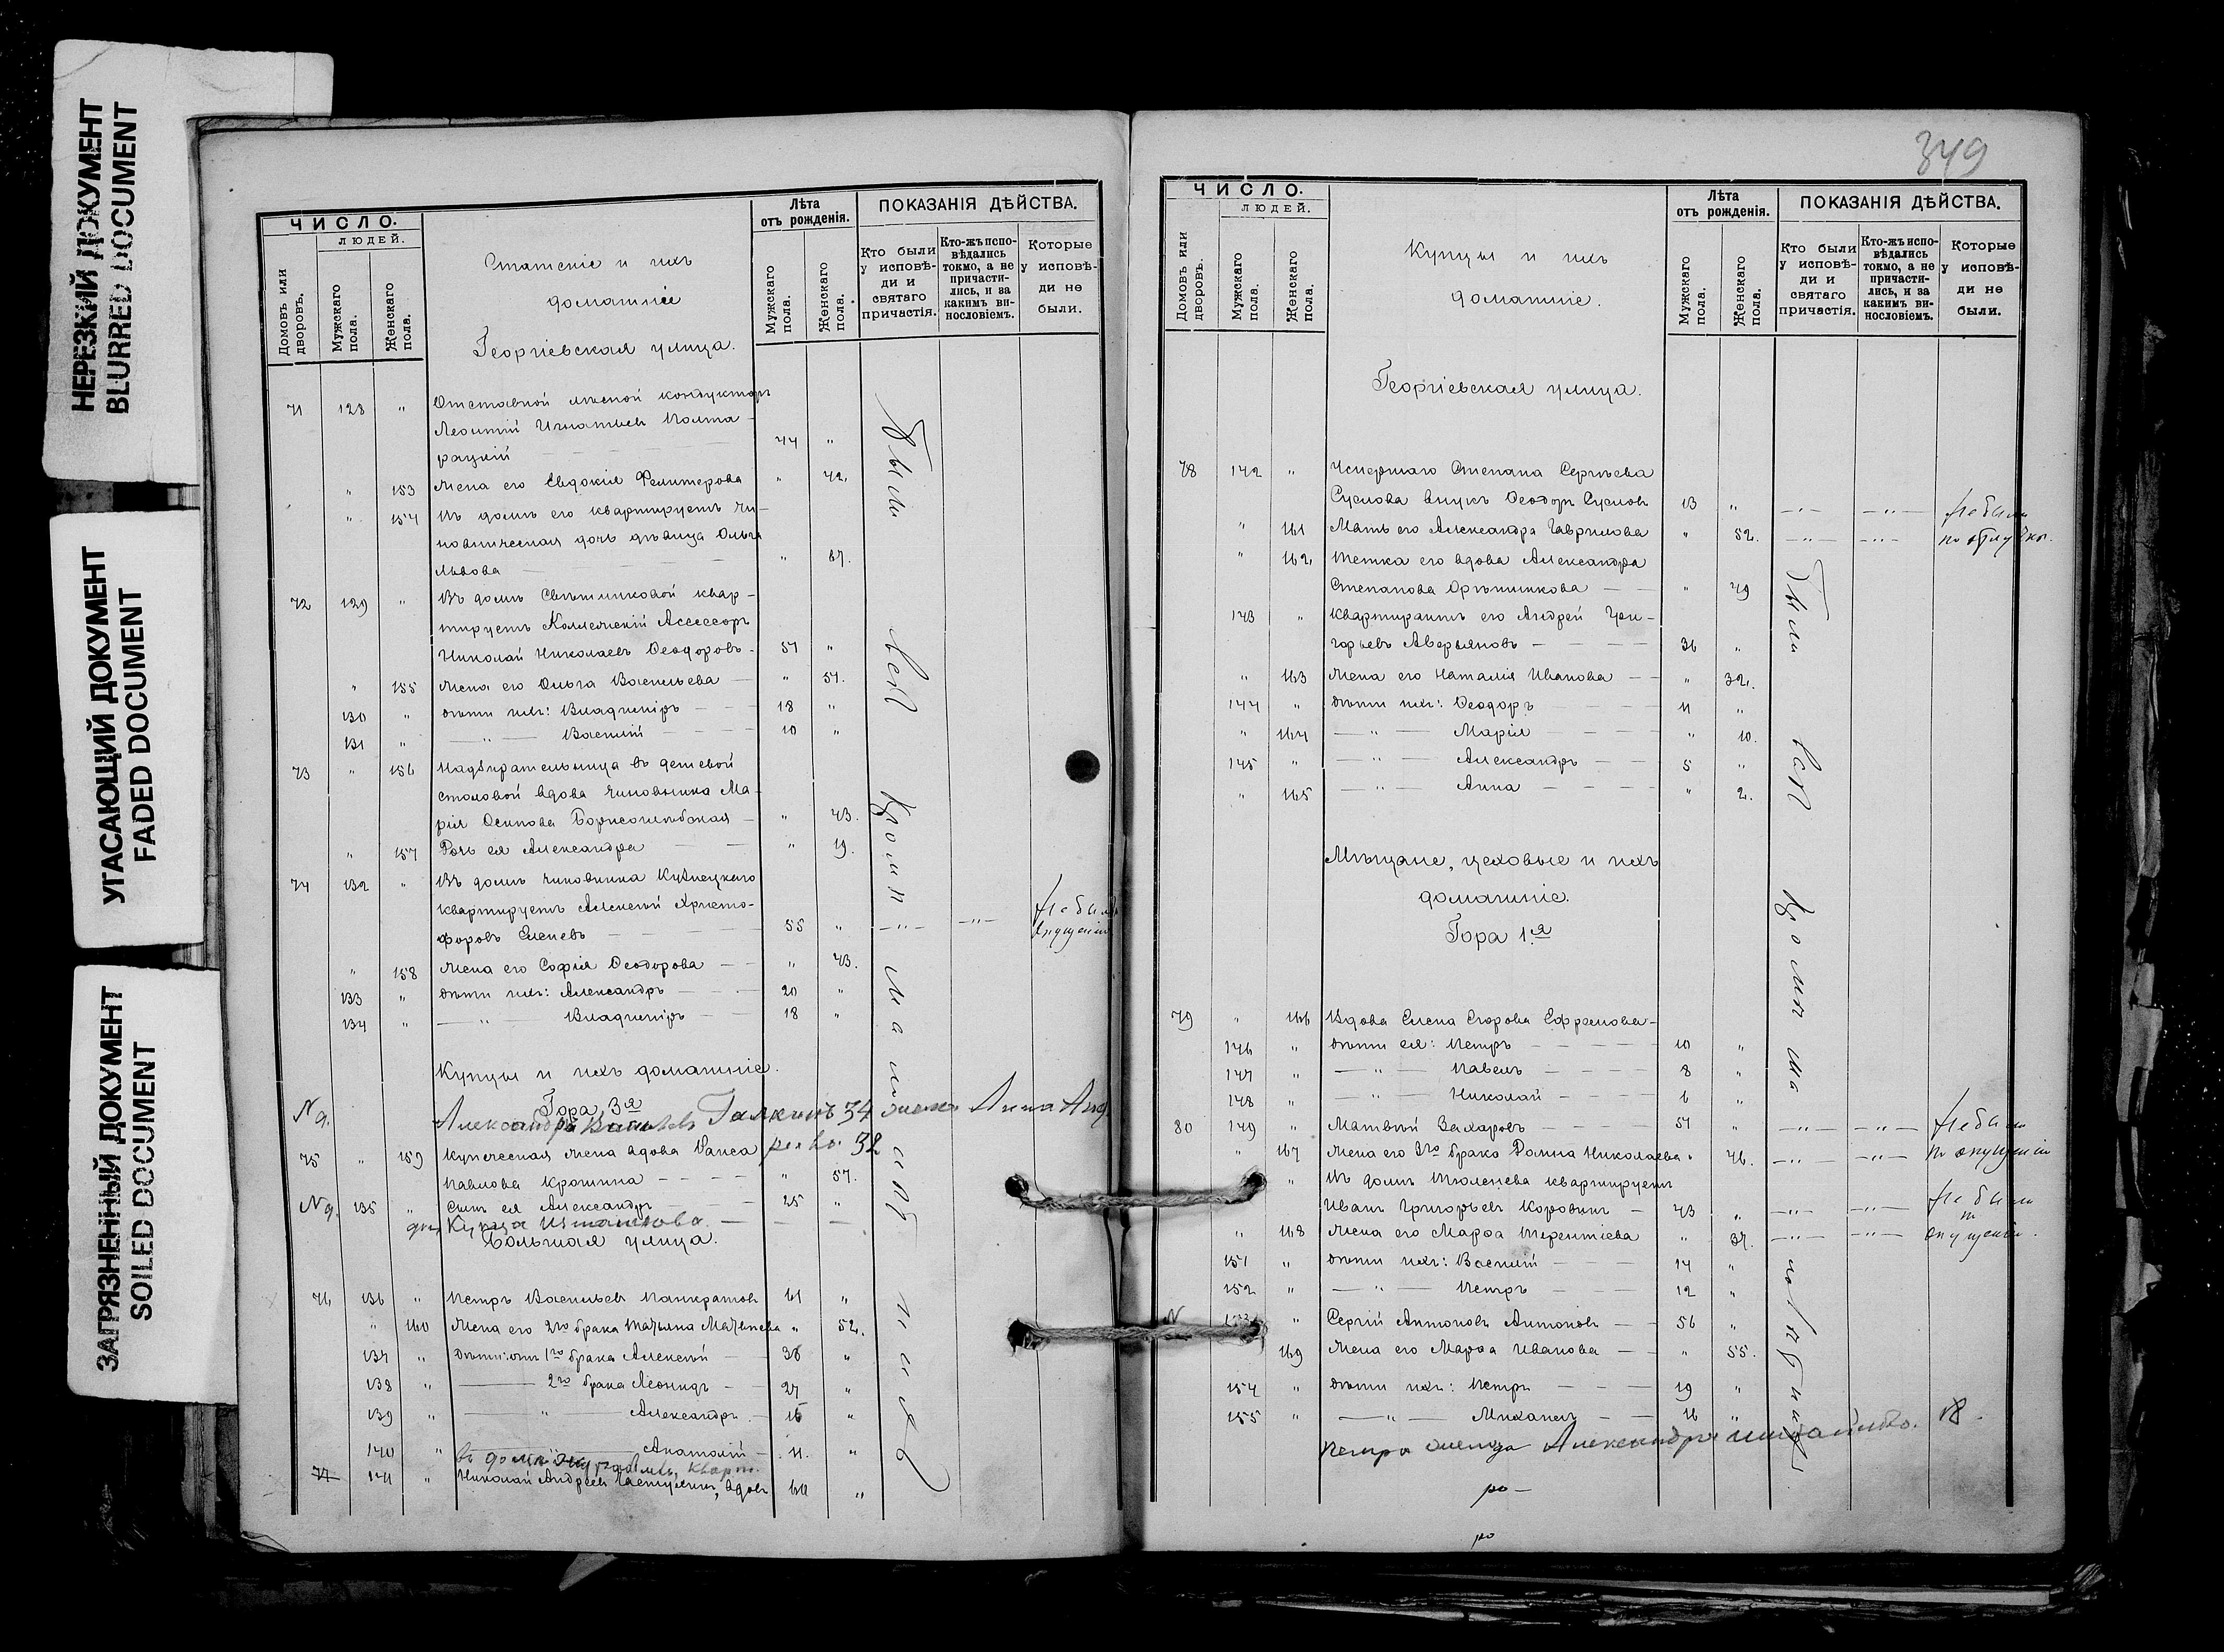 НЕРЕЗКИЙ ДОКУМЕНТ
BLURRED DOCUMENT
УГАСАЮЩИЙ ДОКУМЕНТ
FADED DOCUMENT
ЗАГРЯЗНЕННЫЙ ДОКУМЕНТ
SOILED DOCUMENT
ЧИСЛО.
ЛЮДЕЙ.
Домовъ или дворовъ.
Мужскаго пола.
Женскаго пола.
Статскіе и ихъ
домашніе
Георгіевская улица.
Лѣта
отъ рожденія.
Мужскаго пола.
Женскаго пола.
ПОКАЗАНІЯ ДѢЙСТВА.
Кто были
у исповѣ-
ди и
святаго
причастія.
Кто-жъ испо-
вѣдались
токмо, а не
причасти-
лись, и за
какимъ ви-
нословіемъ.
Которые
у исповѣ-
ди не
были.
71 128 " Отставной лѣсной кондукторъ
Леонтій Игнатьев Полта-
рацкій 44 "
" 153 Жена его Евдокія " 42.
" 154 Въ домѣ его квартируетъ чи-
новническая дочь дѣвица Ольга
Львова " 67.
72 129 " Въ домѣ Свѣшниковой квар-
тируетъ Коллежскій Ассессоръ
Николай Николаевъ Ѳеодоровъ 57 "
" 155 Жена его Ольга Васильева " 51.
130 " дѣти ихъ: Владиміръ 18 "
131 " — " — Василій 10 "
73 " 156 Надзирательница въ дешевой
столовой вдова чиновника Ма-
рія Осипова Борисоглѣбская " 43.
" 157 Дочь ея Александра " 19.
74 132 " Въ домѣ чиновника Кузнецкаго
квартируетъ Алексѣй Христо-
форовъ Еленевъ 55 " — " — — " — Не былъ
" 158 Жена его Софія Ѳеодорова " 43.
133 " дѣти ихъ: Александръ 20 "
134 " — " — Владиміръ 18 "
Купцы и ихъ домашніе.
Гора 3я
Александръ Галкинъ 34 жена Анна
32
75 " 159 Купеческая жена вдова Раиса
Павлова Крошина " 57.
135 " Сынъ ея Александръ 25 "
Большая улица.
76 136 " Петръ Васильевъ Панкратовъ 61 "
" 160 Жена его 2го брака Татьяна " 52.
137 " дѣти: отъ 1го брака Алексѣй 36 "
138 " 2го брака Леонидъ 27 "
139 " — " — Александръ 16 "
140 " Анатолій 11. "
77 141 " Николай Андреевъ вдовъ 60 "
Были всѣ кромѣ
349
ЧИСЛО.
ЛЮДЕЙ.
Домовъ или дворовъ.
Мужскаго пола.
Женскаго пола.
Купцы и ихъ
домашніе.
Лѣта
отъ рожденія.
Мужскаго пола.
Женскаго пола.
ПОКАЗАНІЯ ДѢЙСТВА.
Кто были
у исповѣ-
ди и
святаго
причастія.
Кто-жъ испо-
вѣдались
токмо, а не
причасти-
лись, и за
какимъ ви-
нословіемъ.
Которые
у исповѣ-
ди не
были.
Георгіевская улица.
78 142 " Умершаго Степана Сергѣева
Суслова внукъ Ѳеодоръ Сусловъ 13 " — " — — " — Не были
" 161 Мать его Александра Гаврилова " 52. — " — — " — по отлучкѣ.
" 162 Тетка его вдова Александра
Степанова Орѣшникова " 49
143 " Квартирантъ его Андрей Гри-
горьевъ Аверьяновъ 36 "
" 163 Жена его Наталія Иванова " 32.
144 " дѣти ихъ: Ѳеодоръ 11 "
" 164 — " — Марія " 10.
145 " — " — Александръ 5 "
" 165 — " — Анна " 2.
Мѣщане, цеховые и ихъ
домашніе.
Гора 1.я
79 " 166 Вдова Елена Егорова Ефремова
146 " дѣти ея: Петръ 10 "
147 " — " — Павелъ 8 "
148 " — " — Николай 6 "
80 149 " Матвѣй Захаровъ 57 " — " — — " — Не были
" 167 Жена его 3го брака Домна Николаева " 46. — " — — " — по опущенію
" Въ домѣ Тюленева квартируетъ
Иванъ Григорьевъ Коровинъ 43 " — " — — " — Не были
" 168 Жена его Марѳа Терентіева " 37. — " — — " — по опущенію.
151 " дѣти ихъ: Василій 14 "
152 " — " — Петръ 12 "
" Сергій Антоновъ Антоновъ 56 "
169 Жена его Марѳа Иванова " 55.
154 " дѣти ихъ: Петръ 19 "
155 " — " — Михаилъ 16 "
Петра жена Александра Михайлова. 18.
Были всѣ кромѣ